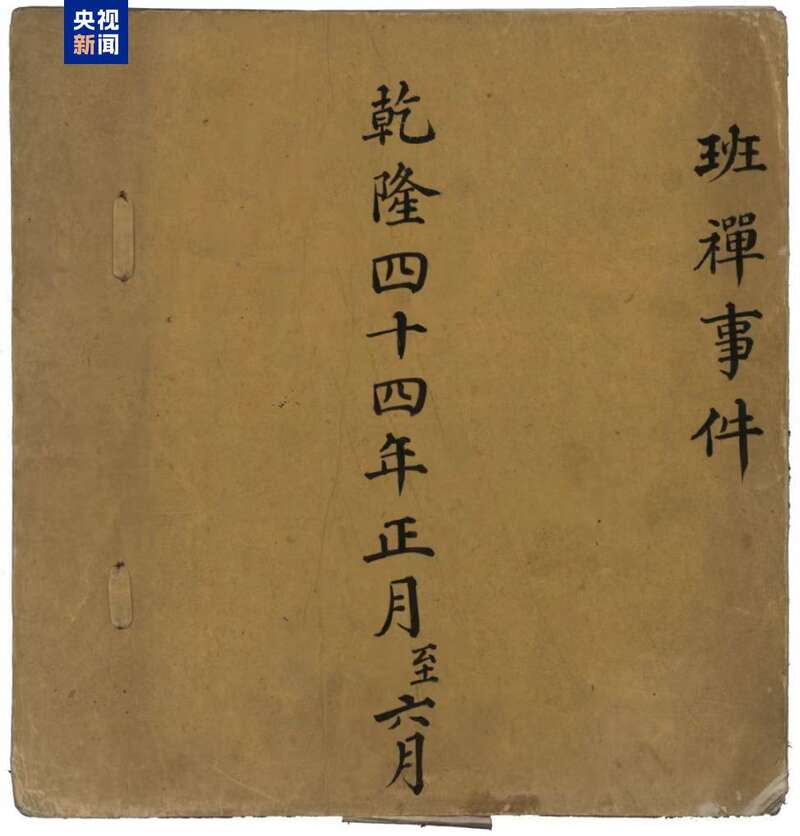 央视
新闻
班禪事件
乾隆四十四年正月至六月